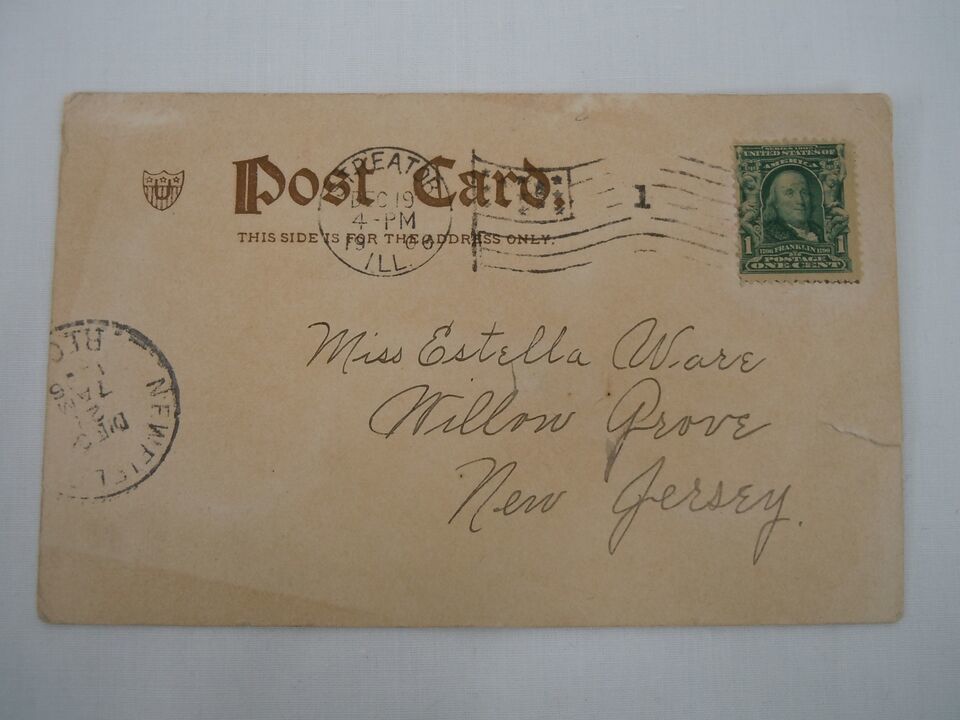 U
Post Card.
THIS SIDE IS FOR THE ADDRESS ONLY.
STREATOR
DEC 19
4-PM
ILL.
1
SERIES 1902
UNITED STATES OF
AMERICA
1 1706 FRANKLIN 1790 1
POSTAGE
ONE CENT
Miss Estella Ware
Willow Grove
New Jersey.
NEWFIEL
DEC
7 AM
REC